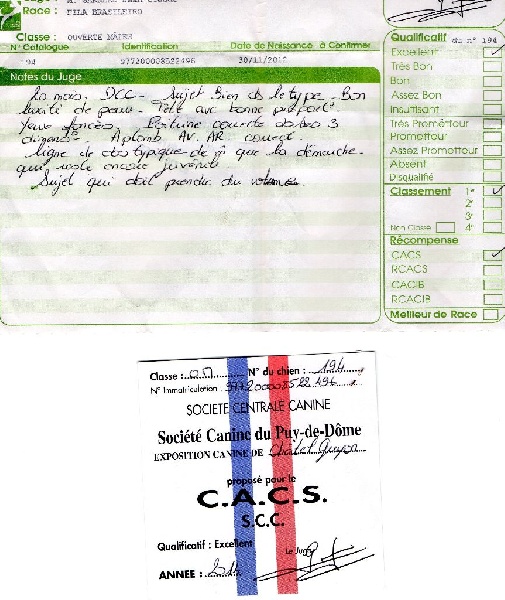 Race : FILA BRASILEIRO
Classe : OUVERTE MALES
N° Catalogue Identification Date de Naissance à Confirmer
194 977200008522496 30/11/2012
Notes du Juge
DCC - Sujet Bien ds le type - Bon
laxité de peau - Tête avec bonne
Yeux foncés. Poitrine
Aplomb AV. AR correct.
ligne de dos typique de que la démarche
encore juvénile
Sujet qui doit prendre du volume
Qualificatif du n° 194
Excellent
Très Bon
Bon
Assez Bon
Insuffisant
Très Prometteur
Prometteur
Assez Prometteur
Absent
Disqualifié
Classement 1e
2e
3e
Non Classé 4e
Récompense
CACS
RCACS
CACIB
RCACIB
Meilleur de Race
Classe : N° du chien : 194
N° Immatriculation :
SOCIETE CENTRALE CANINE
Société Canine du Puy-de-Dôme
EXPOSITION CANINE DE Châtel Guyon
proposé pour le
C.A.C.S.
S.C.C.
Qualificatif : Excellent
Le Juge
ANNEE : 2014